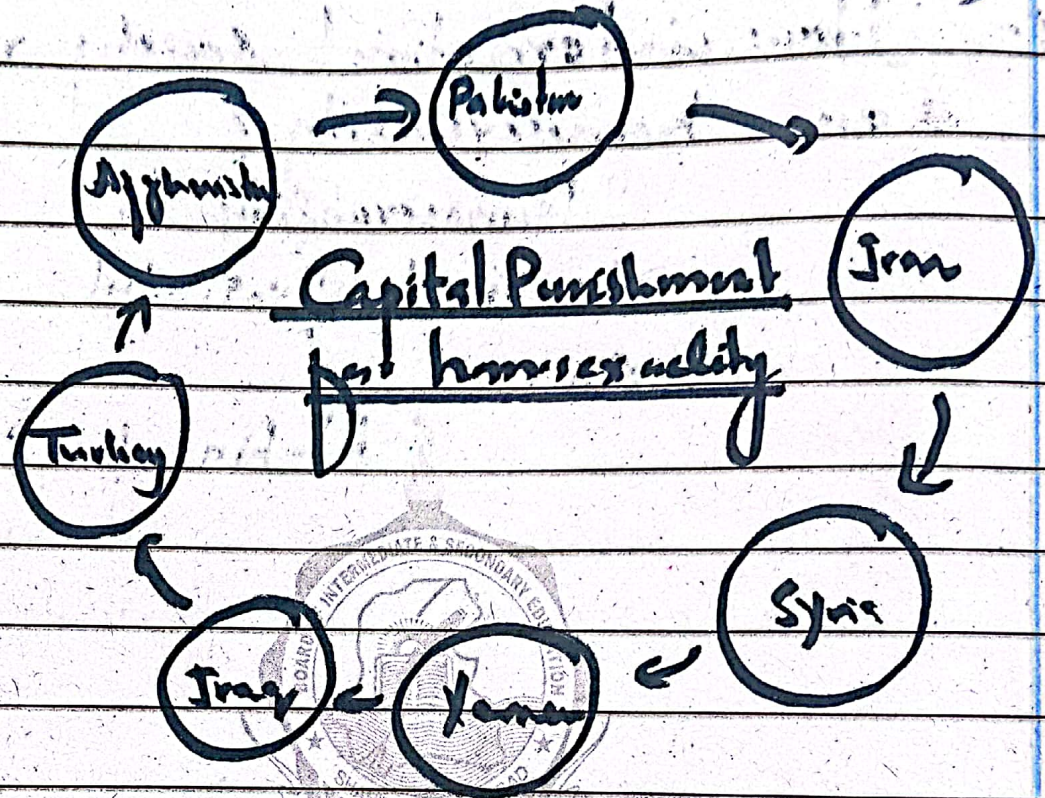 Pakistan
Afghanistan
Iran
Capital Punishment
for homosexuality
Turkey
Syria
Iraq
Yemen
BOARD INTERMEDIATE & SECONDARY EDUCATION